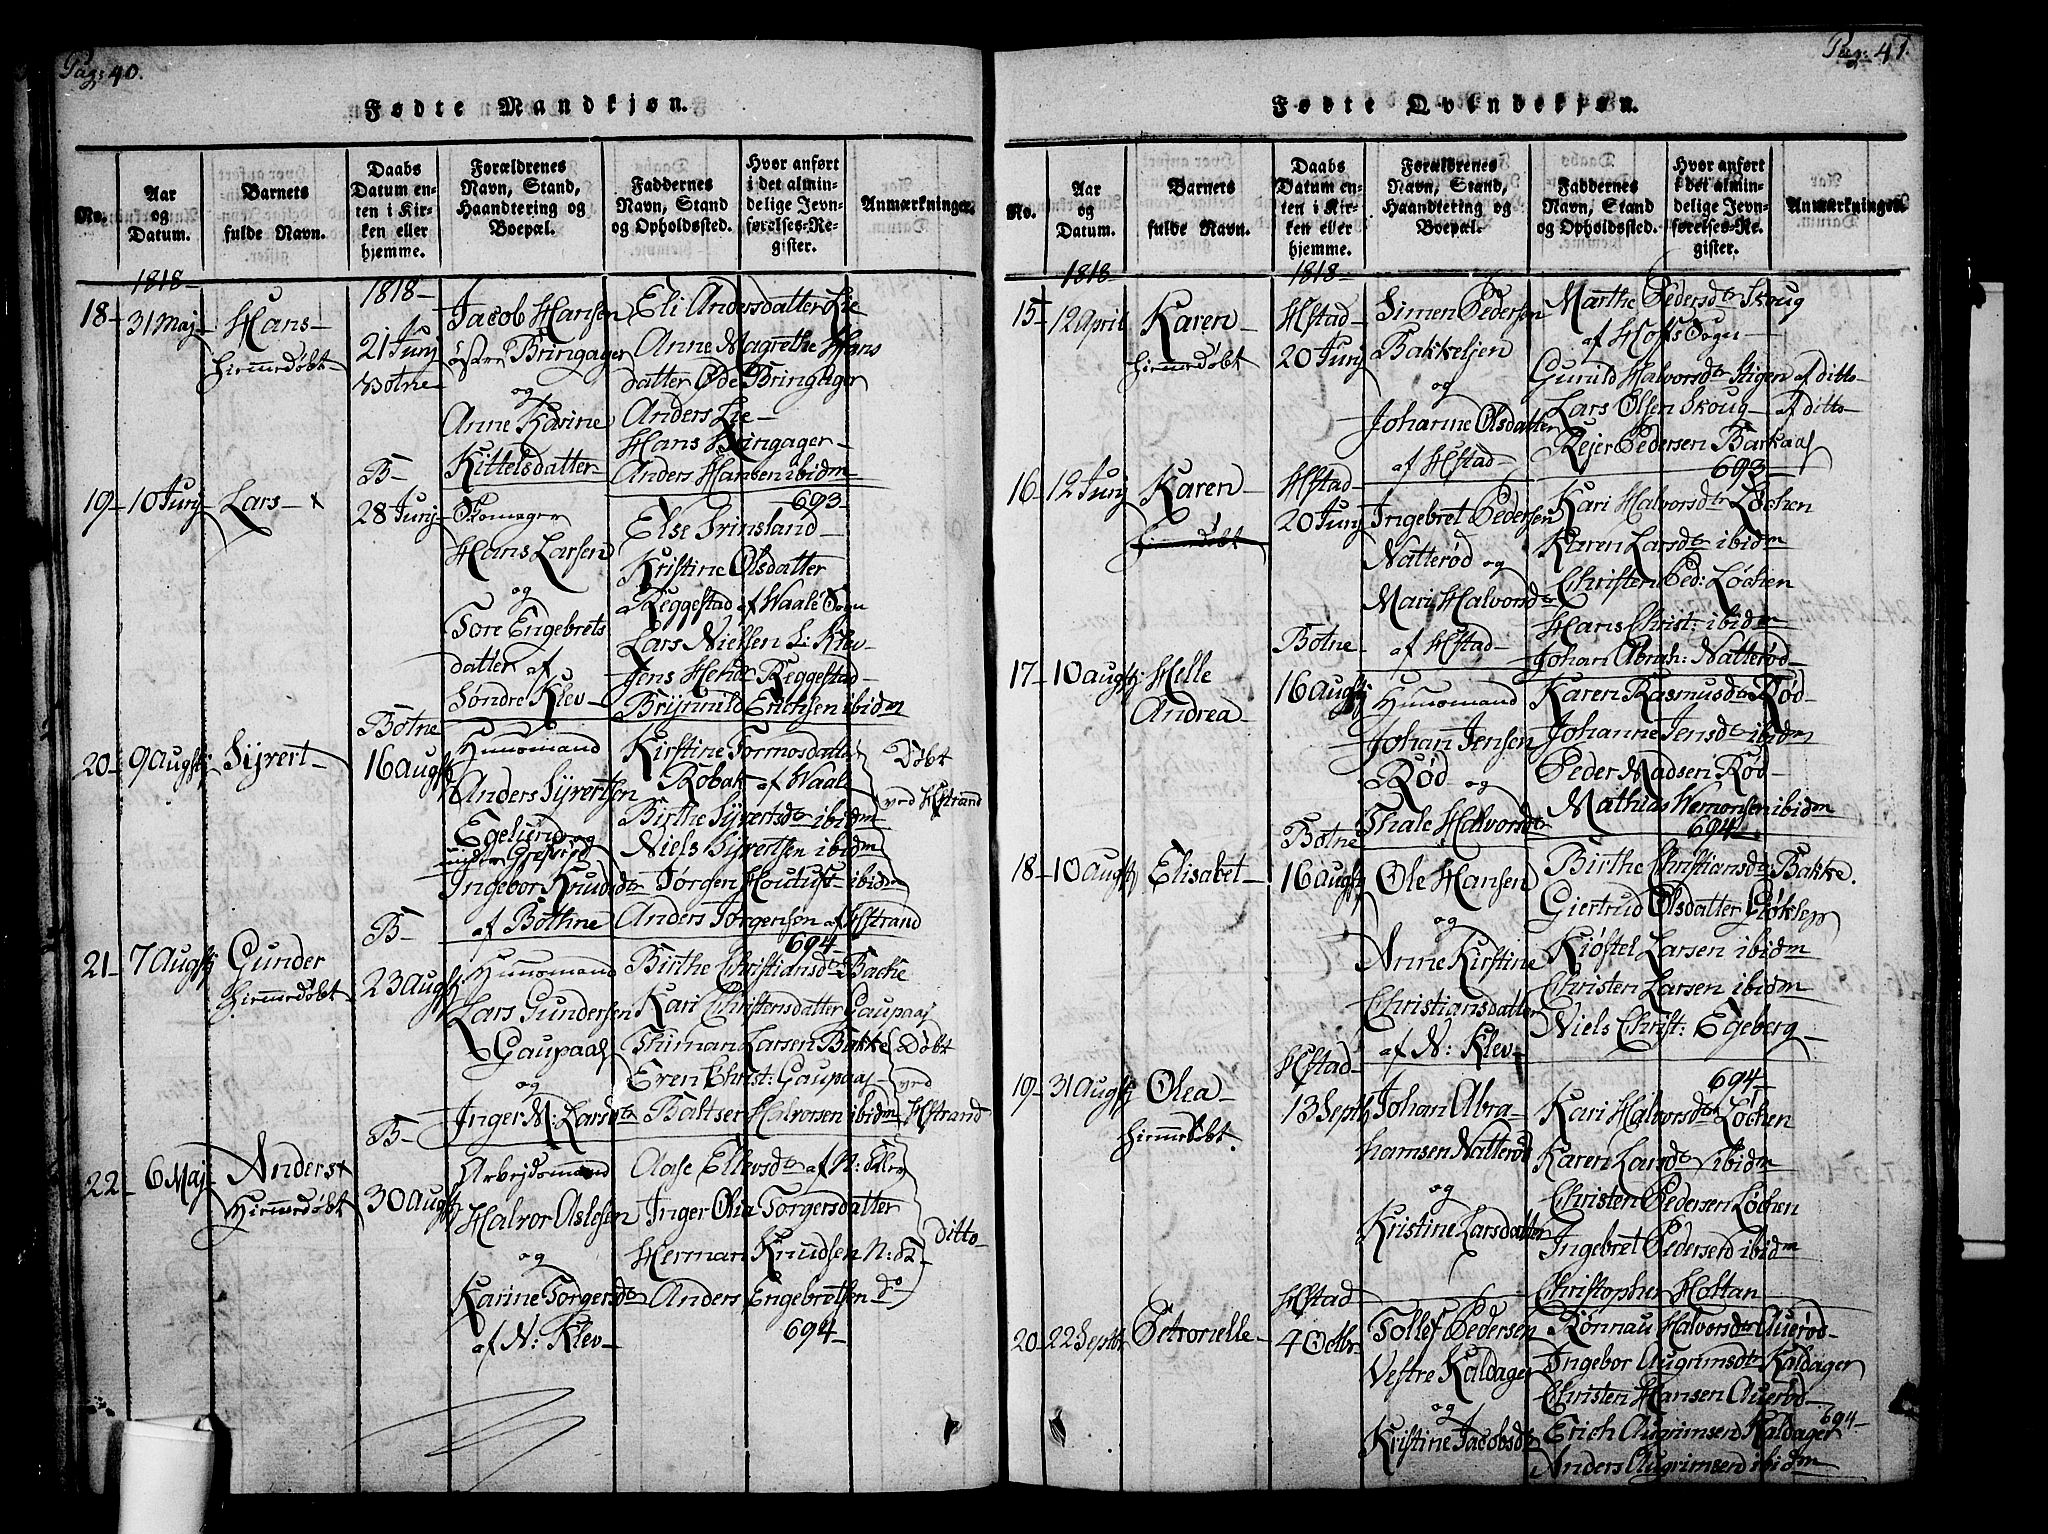 Pag: 40.
Fødte Mandkjøn.
No.
Aar og Datum.
Barnets fulde Navn.
Daabs Datum enten i Kirken eller hjemme.
Forældrenes Navn, Stand, Haandtering og Boepæl.
Faddernes Navn, Stand og Opholdssted.
Hvor anført i det almindelige Jevnførelses-Register.
Anmærkninger.
1818-
18-
31 Maj-
Hans-
hiemmedøbt-
1818-
21 Junj
Botne-
Jacob Hansen
østre Bringager
og
Anne Karine
Kittelsdatter-
Eli Andersdatter Lie
Anne Magrethe Hans
datter Øde Bringager
Anders Lie-
Hans Bringager-
Anders Hansen ibidm
693-
19-
10 Junj
Lars-
B-
28 Junj-
Skomager
Hans Larsen
og
Tore Engebrets
datter af
Søndre Klev-
Else Trinsland-
Kristine Olsdatter
Reggestad af Waale Sogn
Lars Nielsen S: Klev-
Jens Hend: Reggestad-
Brynnild Erichsen ibidm
20-
9 Augstj
Syvert-
Botne
16 Augstj
Huusmand
Anders Syvertsen
Egelund og
Ingebor Knudsdtr
af Bothne
Kirstine Tormosdatter
Robak af Waale
Birthe Syvertsdtr ibidm
Niels Syvertsen ibidm
Jørgen Houtuft- ibidm
Anders Torgersen af Hstrand
694-
Døbt
ved Hstrand
21-
7 Augstj
Gunder
hiemmedøbt
B-
23 Augstj
Huusmand
Lars Gundersen
Gaupaas
og
Inger M: Larsdtr
Birthe Christiansdtr Backe
Kari Christensdatter Gaupaas
Thiman Larsen Bakke
Even Christ: Gaupaas-
Baltser Halvorsen ibidm
Døbt
ved
Hstrand
22-
6 Maj-
Anders
Hiemmedøbt
B-
30 Augstj
Arbejdsmand
Halvor Aslesen
og
Karine Torgersdtr
af N: Klev-
Aase Ellevsdtr af N: Klev
Inger Olia Torgersdatter
Herman Knudsen N: Kl-
Anders Engebretsen do-
694-
ditto-
Pag: 41.
Fødte Qvindekjøn.
No.
Aar og Datum.
Barnets fulde Navn.
Daabs Datum enten i Kirken eller hjemme.
Forældrenes Navn, Stand, Haandtering og Boepæl.
Faddernes Navn, Stand og Opholdssted.
Hvor anført i det almindelige Jevnførelses-Register.
Anmærkningen.
1818-
15-
12 April
Karen-
hiemmedøbt
1818-
Hstad-
20 Junj
Simen Pedersen
Bakkeljen
og
Johanne Olsdatter
af Hstad-
Marthe Pedersdtr Skoug
af Hoffs Sogn-
Gunild Halvorsdtr Stigen af ditto-
Lars Olsen Skoug- af ditto-
Rejer Pedersen Barkaas
693-
16-
12 Junj
Karen-
hiemmedøbt
Hstad-
20 Junj
Ingebret Pedersen
Natterød og
Mari Halvorsdtr
af Hstad-
Kari Halvorsdtr Løchen
Karen Larsdtr ibidm
Christen Ped: Løchen
Hans Christ: ibidm
Johan Abrah: Natterød-
17-
10 Augstj
Helle
Andrea-
Botne-
16 Augstj
Huusmand
Johan Jensen
Rød- og
Thale Halvorsdtr
Karen Rasmusdtr Rød-
Johanne Jensdtr ibidm
Peder Madsen Rød-
Mathias Wemonsen ibidm
694-
18-
10 Augstj
Elisabet-
Botne
16 Augstj
Ole Hansen
og
Anne Kirstine
Christiansdatter
af N: Klev-
Birthe Christiansdtr Bakke.
Giertrud Olsdatter Gøklep
Kiøstel Larsen ibidm
Christen Larsen ibidm
Niels Christ: Egeberg-
694-
19-
31 Augstj
Olea-
hiemmedøbt.
Hstad-
13 Septb
Johan Abra-
hamsen Natterød
og
Kristine Larsdatter
Kari Halvorsdtr Løchen
Karen Larsdtr ibidm
Christen Pedersen Løchen
Ingebret Pedersen ibidm
Christopher Holtan
20-
22 Septbr
Petronelle-
Hstad-
4 Octbr-
Tollef Pedersen
Vestre Kaldager
og
Kristine Jacobsdtr
Rønnau Halvorsdtr Auerød-
Ingebor Augrimsdtr Kaldager
Christen Hansen Auerød-
694-
Erich Augrimsen Kaldager
Anders Augrimsen ibidm